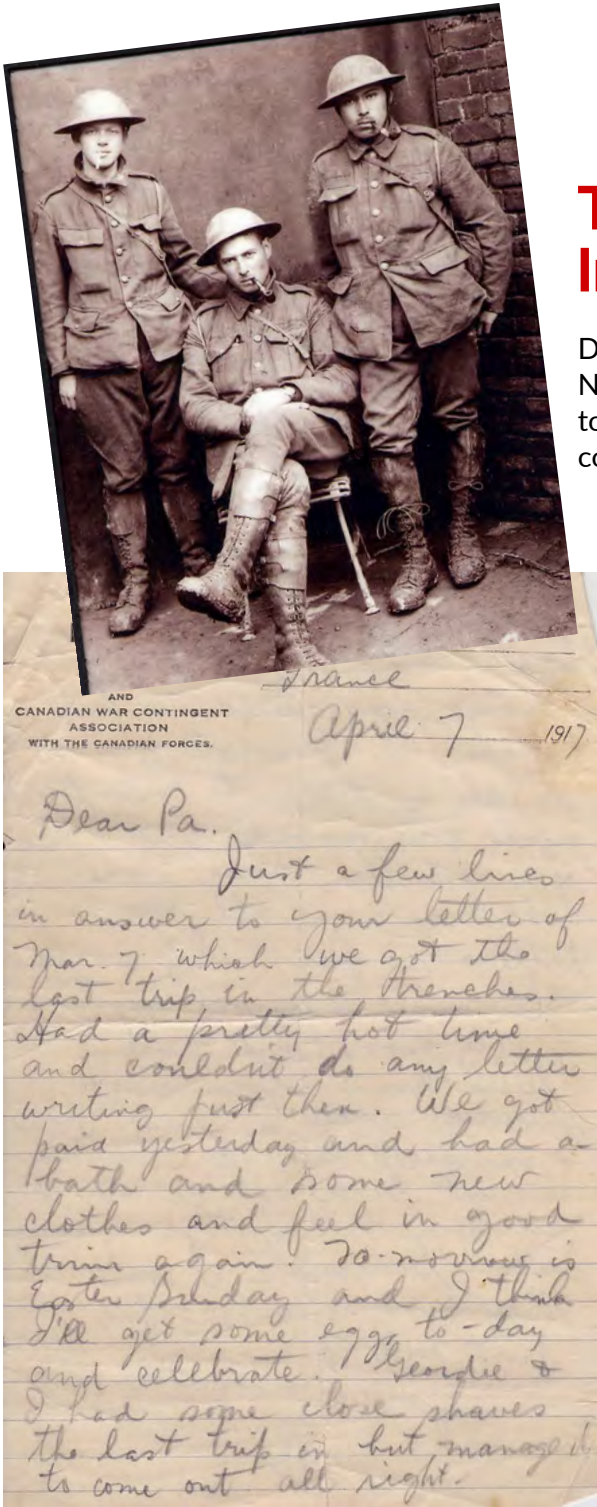 T
D
N
to
co
France
AND
CANADIAN WAR CONTINGENT
ASSOCIATION
WITH THE CANADIAN FORCES.
April 7 1917
Dear Pa.
Just a few lines
in answer to your letter of
Mar. 7 which we got the
last trip in the trenches.
Had a pretty hot time
and couldn't do any letter
writing just then. We got
paid yesterday and had a
bath and some new
clothes and feel in good
trim again. To-morrow is
Easter Sunday and I think
I'll get some eggs to-day
and celebrate. Geordie &
I had some close shaves
the last trip in but managed
to come out all right.